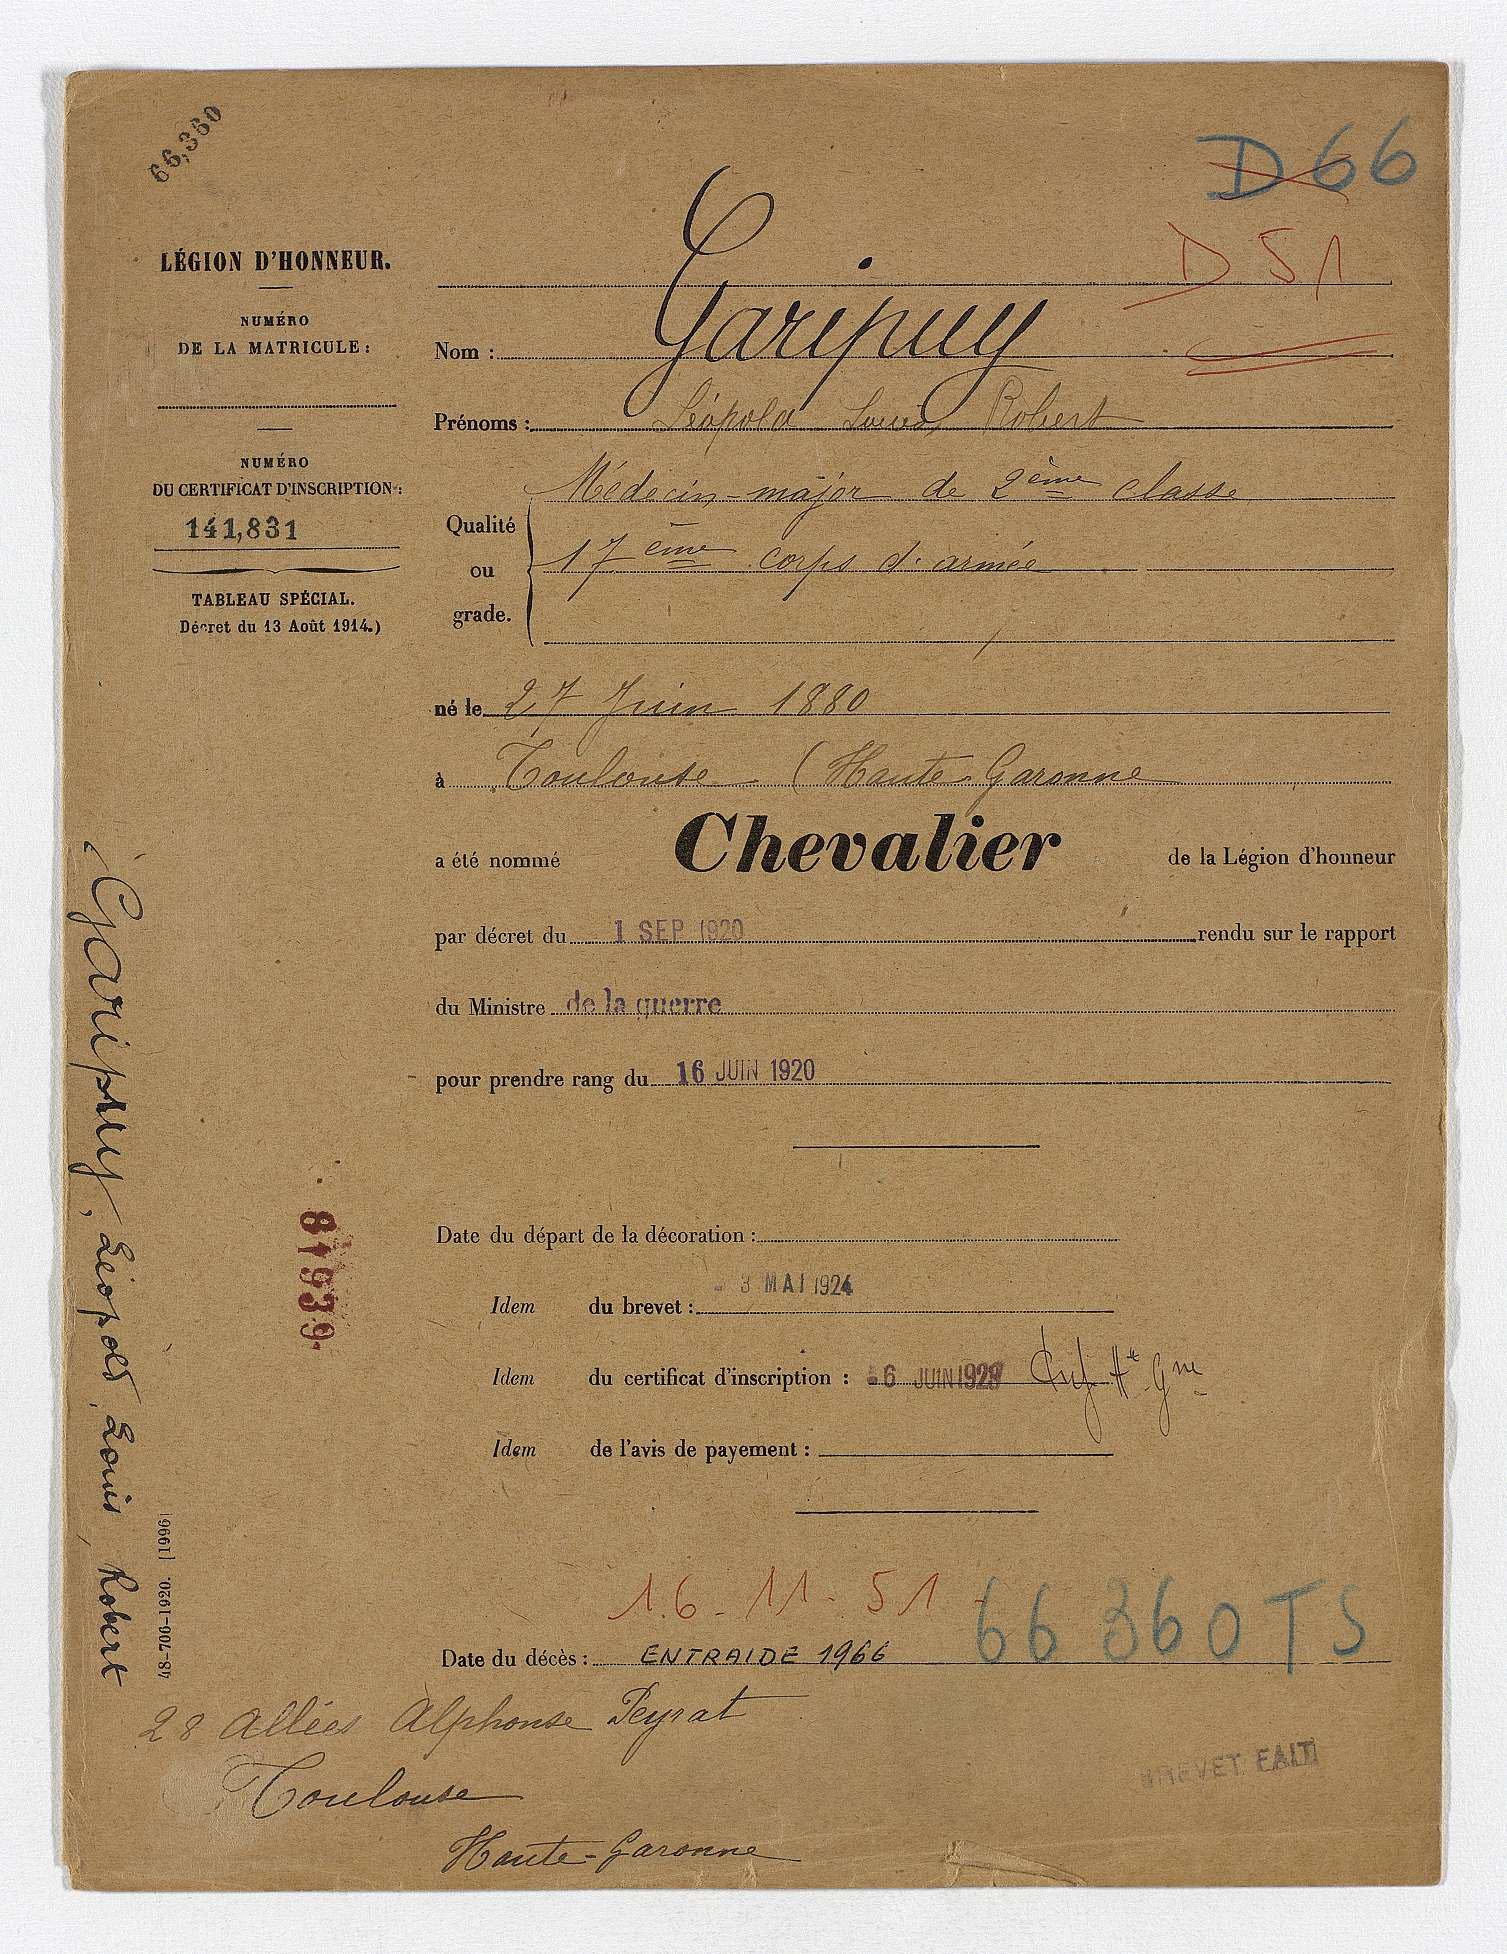 66,360
D 66
D 51
LÉGION D'HONNEUR.
NUMÉRO
DE LA MATRICULE :
NUMÉRO
DU CERTIFICAT D'INSCRIPTION :
141,831
TABLEAU SPÉCIAL.
Décret du 13 Août 1914.)
Nom : Garipuy
Prénoms : Léopold Louis Robert
Qualité ou grade. Médecin-major de 2ème classe
17ème corps d'armée
né le 27 Juin 1880
à Toulouse (Haute-Garonne
a été nommé Chevalier de la Légion d'honneur
par décret du 1 SEP 1920 rendu sur le rapport
du Ministre de la guerre
pour prendre rang du 16 JUIN 1920
Date du départ de la décoration :
Idem du brevet : 3 MAI 1924
Idem du certificat d'inscription : 6 JUIN 1928 Hte Gne
Idem de l'avis de payement :
16-11-51
66 360 TS
Date du décès : ENTRAIDE 1966
28 Allées Alphonse Peyrat
Toulouse
Haute-Garonne
BREVET FAIT
Garipuy, Léopold, Louis, Robert
81939
48-706-1920. [1996]